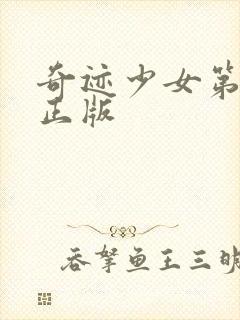 奇迹少女第
正版
吞拏鱼王三明